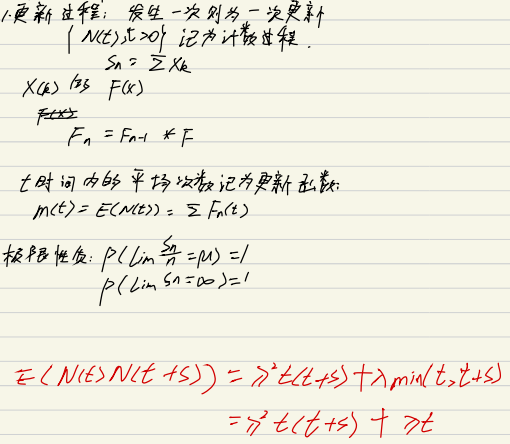 1.更新过程：发生一次则为一次更新
{N(t),t>0} 记为计数过程.
Sn = ΣXk
X(k) 的 F(x)
F(x)
Fn = Fn-1 * F
t时间内的平均次数记为更新函数:
m(t) = E(N(t)) = ΣFn(t)
极限性质: P(lim Sn/n = μ) = 1
P(lim Sn = ∞) = 1
E(N(t)N(t+s)) = λ²t(t+s) + λmin(t,t+s)
= λ²t(t+s) + λt